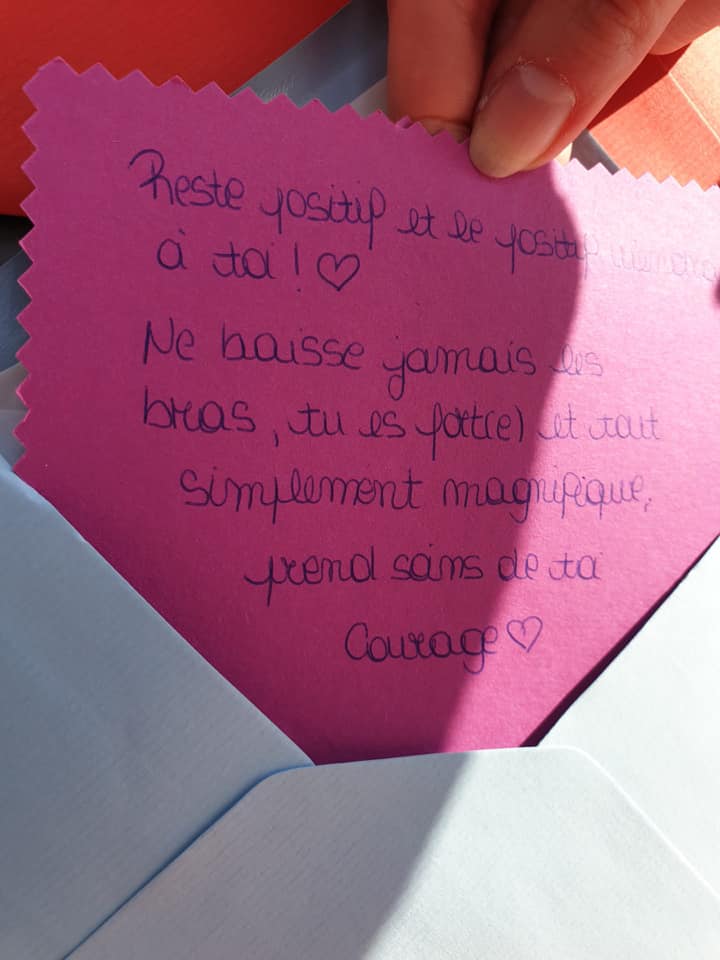 Reste positif et le positif viendra
à toi ! ♡
Ne baisse jamais les
bras, tu es fort(e) et tout
simplement magnifique,
prend soins de toi
Courage ♡